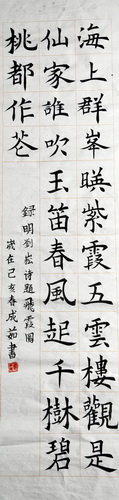 海上群峯暎紫霞五雲樓觀是
仙家誰吹玉笛春風起千樹碧
桃都作花
録明劉崧诗題飛霞圖
歲在己亥春成茹書